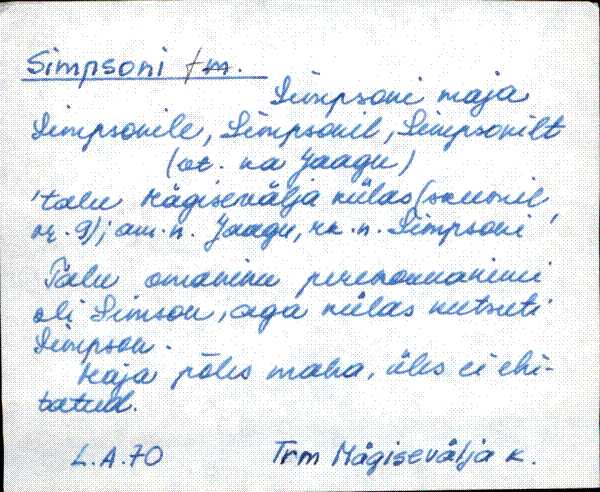 Simpsoni tm.
Simpsoni maja
Simpsonile, Simpsonil, Simpsonilt
(vt. ka Jaagu)
'talu Mägisevälja külas (skeemil
nr. 9); am. n. Jaagu, rk. n. Simpsoni
Talu omaniku perekonnanimi
oli Simson, aga külas kutsuti
Simpson.
Maja põles maha, üles ei ehi-
tatud.
L.A.70 Trm Mägisevälja k.